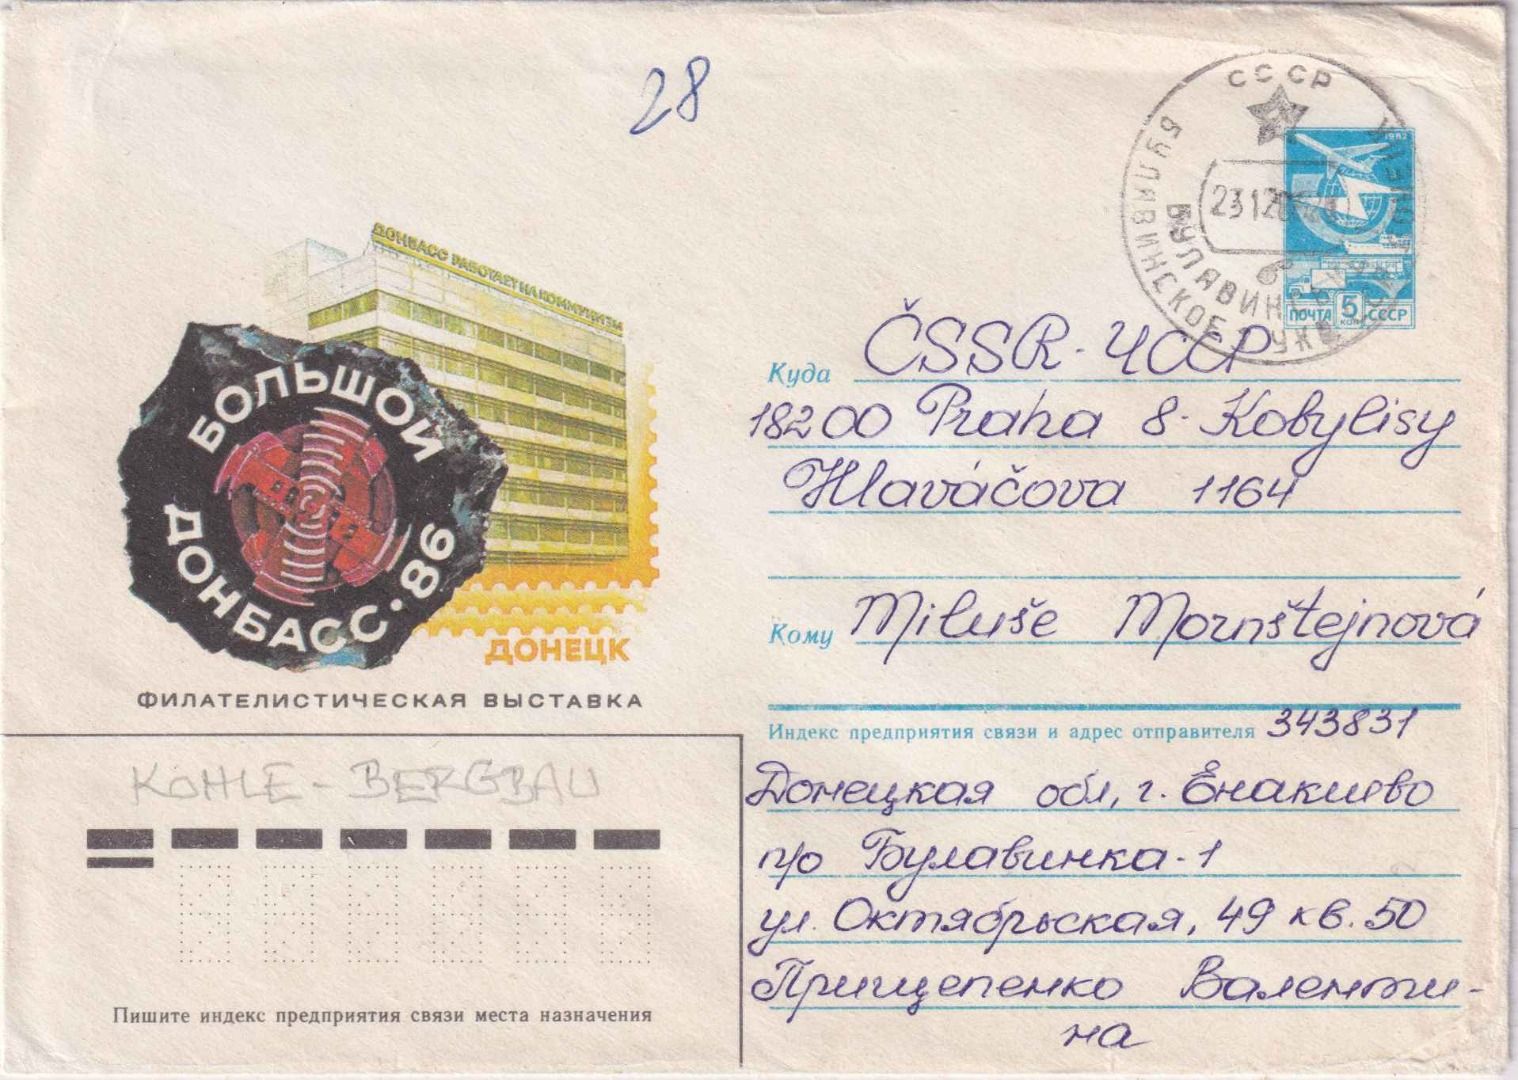 28
СССР
БУЛАВИНСКОЕ
23 12
1982
ПОЧТА 5 КОП СССР
ДОНБАСС РАБОТАЕТ НА КОММУНИЗМ
БОЛЬШОЙ
ДОНБАСС·86
ДОНЕЦК
ФИЛАТЕЛИСТИЧЕСКАЯ ВЫСТАВКА
Куда ČSSR-ЧССР
18200 Praha 8-Kobylisy
Hlaváčova 1164
Кому Miluše Mornštejnová
Индекс предприятия связи и адрес отправителя 343831
Донецкая обл, г. Енакиево
п/о Булавинка-1
ул. Октябрьская, 49 кв. 50
Прищепенко Валенти-
на
KOHLE-BERGBAU
Пишите индекс предприятия связи места назначения